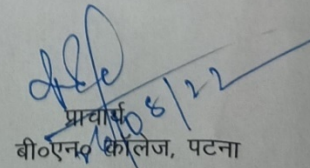 08/22
प्राचार्य
बी०एन० कॉलेज, पटना